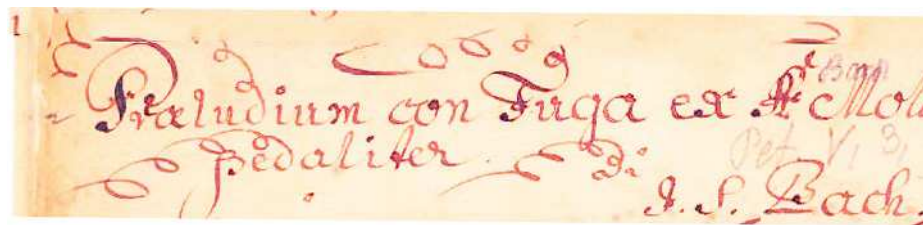 1
Præludium con Fuga ex A Mol
pedaliter. di
J. S. Bach.